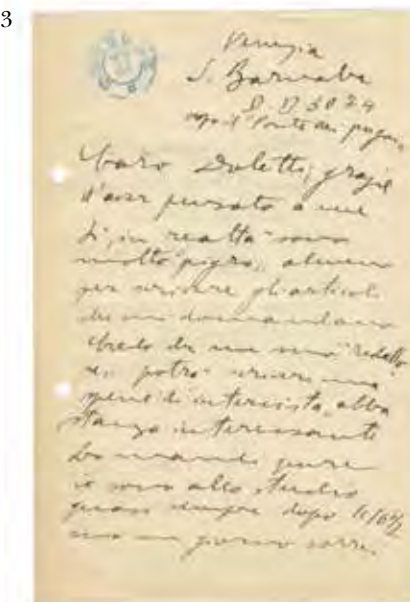 3
Venezia
S. Barnaba
D. D. 30 74
Caro Doletti, grazie
d'aver pensato a me
Sì, in realtà sono
molto "pigro", almeno
per scrivere gli articoli
che mi domandano
Credo che un suo "redatto
re" potrà scrivere una
specie di intervista, abba
stanza interessante
Lo mandi pure
io sono allo studio
quasi sempre dopo le
ma un giorno